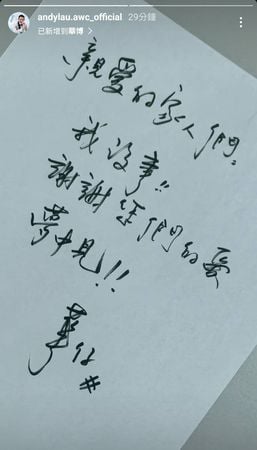 andylau.awc_official 29分鐘
已新增到華博
親愛的家人們。
我沒事!!
謝謝您們的愛
夢中見!!
華仔
#